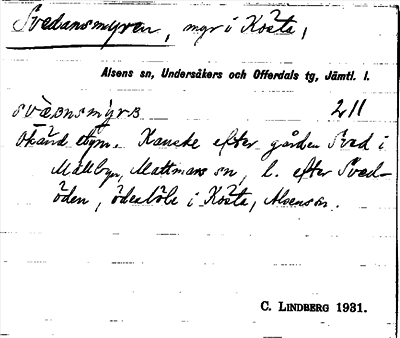 Svedansmyren, mgr i Kösta,
Alsens sn, Undersåkers och Offerdals tg, Jämtl. l.
svèᴅnsmy̆rɴ 211
Okänd etym. Kanske efter gården Sved i
Mällbyn, Mattmars sn, l. efter Sved-
öden, ödesböle i Kösta, Alsens sn.
C. LINDBERG 1931.